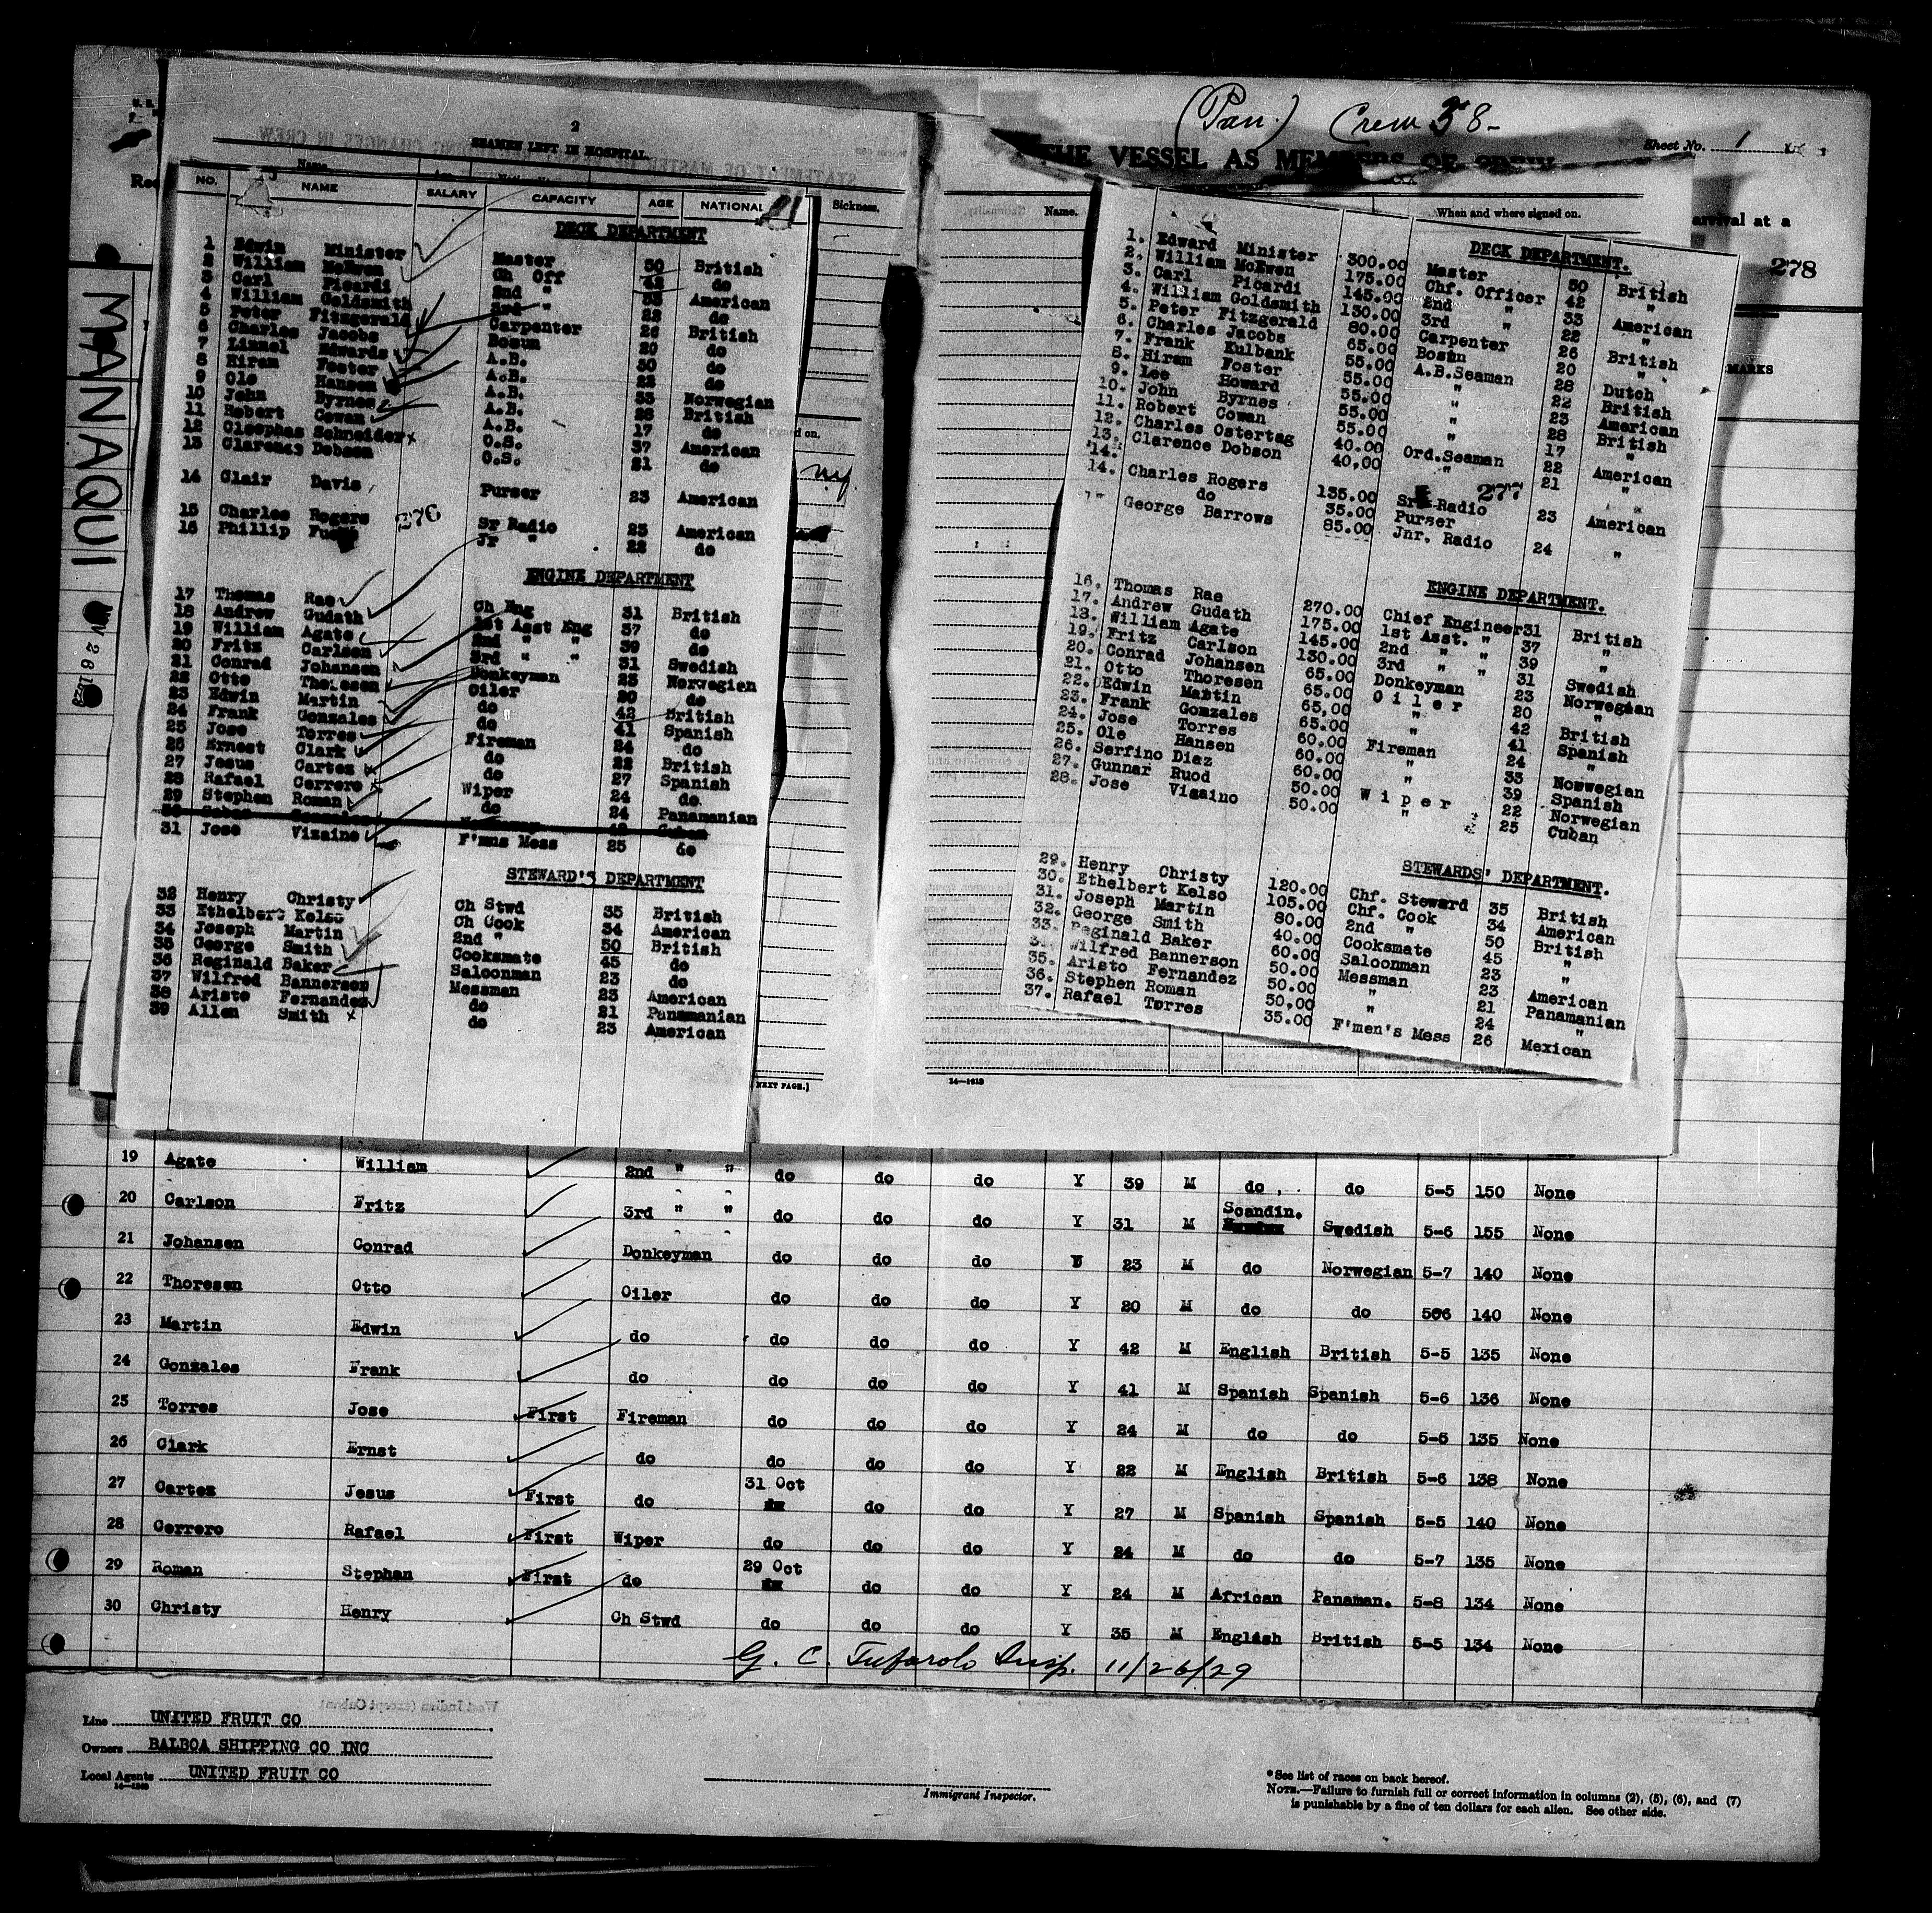 (Pan.) Crew 38-
Sheet No. 1
THE VESSEL AS MEMBERS OF CREW
arrival at a
278
MARKS
MANAQUI
2
SEAMEN LEFT IN HOSPITAL.
Name.
Sickness.
NO. NAME SALARY CAPACITY AGE NATIONAL 21
DECK DEPARTMENT
1 Edwin Minister Master 50 British
2 William McEwen Ch Off 42 do
3 Carl Picardi 2nd " 33 American
4 William Goldsmith 3rd " 22 do
5 Peter Fitzgerald Carpenter 26 British
6 Charles Jacobs Bosun 20 do
7 Lionel Edwards A.B. 30 do
8 Hiram Foster A.B. 22 do
9 Ole Hansen A.B. 33 Norwegian
10 John Byrnes A.B. 28 British
11 Robert Cowan A.B. 17 do
12 Cleophas Schneider x O.S. 37 American
13 Clarence Dobson O.S. 21 do
14 Clair Davis Purser 23 American
276
15 Charles Rogers Sr Radio 23 American
16 Phillip Jr " 22 do
ENGINE DEPARTMENT
17 Thomas Rae Ch Eng 31 British
18 Andrew Gudath 1st Asst Eng 37 do
19 William Agate 2nd " " 39 do
20 Fritz Carlsen 3rd " " 31 Swedish
21 Conrad Johansen Donkeyman 23 Norwegian
22 Otto Thoresen Oiler 20 do
23 Edwin Martin do 42 British
24 Frank Gonzales do 41 Spanish
25 Jose Torres Fireman 24 do
26 Ernest Clark do 22 British
27 Jesus Cartez do 27 Spanish
28 Rafael Cerrero Wiper 24 do
29 Stephen Roman do 24 Panamanian
31 Jose Vizaino F'mns Mess 25 do
STEWARD'S DEPARTMENT
32 Henry Christy Ch Stwd 35 British
33 Ethelbert Kelso Ch Cook 34 American
34 Joseph Martin 2nd " 50 British
35 George Smith Cooksmate 45 do
36 Reginald Baker Saloonman 23 do
37 Wilfred Bannerson Messman 23 American
38 Aristo Fernandez do 21 Panamanian
39 Allen Smith x do 23 American
NEXT PAGE.]
Name.
When and where signed on.
DECK DEPARTMENT.
1. Edward Minister 300.00 Master 50 British
2. William McEwen 175.00 Chf. Officer 42 "
3. Carl Picardi 145.00 2nd " 33 American
4. William Goldsmith 130.00 3rd " 22 "
5. Peter Fitzgerald 80.00 Carpenter 26 British
6. Charles Jacobs 65.00 Bosun 20 "
7. Frank Kulbank 55.00 A.B.Seaman 28 Dutch
8. Hiram Foster 55.00 " 22 British
9. Lee Howard 55.00 " 23 American
10. John Byrnes 55.00 " 28 British
11. Robert Cowan 55.00 " 17 "
12. Charles Ostertag 40.00 Ord.Seaman 22 American
13. Clarence Dobson 40,00 " 21 "
277
14. Charles Rogers 135.00 Sr. Radio 23 American
do 35.00 Purser
George Barrows 85.00 Jnr. Radio 24 "
ENGINE DEPARTMENT.
16. Thomas Rae 270.00 Chief Engineer 31 British
17. Andrew Gudath 175.00 1st Asst. " 37 "
18. William Agate 145.00 2nd " " 39 "
19. Fritz Carlson 130.00 3rd " " 31 Swedish
20. Conrad Johansen 65.00 Donkeyman 23 Norwegian
21. Otto Thoresen 65.00 Oiler 20 "
22. Edwin Martin 65,00 " 42 British
23. Frank Gomzales 65.00 " 41 Spanish
24. Jose Torres 60.00 Fireman 24 "
25. Ole Hansen 60.00 " 33 Norwegian
26. Serfino Diaz 60.00 " 39 Spanish
27. Gunnar Ruod 50.00 Wiper 22 Norwegian
28. Jose Vigaino 50.00 " 25 Cuban
STEWARDS' DEPARTMENT.
29. Henry Christy 120.00 Chf. Steward 35 British
30. Ethelbert Kelso 105.00 Chf. Cook 34 American
31. Joseph Martin 80.00 2nd " 50 British
32. George Smith 40.00 Cooksmate 45 "
33. Reginald Baker 60.00 Saloonman 23 "
Wilfred Bannerson 50.00 Messman 23 American
35. Aristo Fernandez 50.00 " 21 Panamanian
36. Stephen Roman 50.00 " 24 "
37. Rafael Torres 35.00 F'men's Mess 26 Mexican
19 Agate William 2nd " " do do do Y 39 M do do 5-5 150 None
20 Carlson Fritz 3rd " " do do do Y 31 M Scandin. Swedish 5-6 155 None
21 Johansen Conrad Donkeyman do do do 23 M do Norwegian 5-7 140 None
22 Thoresen Otto Oiler do do do Y 20 M do do 506 140 None
23 Martin Edwin do do do do Y 42 M English British 5-5 135 None
24 Gonzales Frank do do do do Y 41 M Spanish Spanish 5-6 136 None
25 Torres Jose First Fireman do do do Y 24 M do do 5-5 135 None
26 Clark Ernst do do do do Y 22 M English British 5-6 138 None
27 Cartez Jesus First do 31 Oct do do Y 27 M Spanish Spanish 5-5 140 None
28 Cerrero Rafael First Wiper do do do Y 24 M do do 5-7 135 None
29 Roman Stephan First do 29 Oct do do Y 24 M African Panaman. 5-8 134 None
30 Christy Henry Ch Stwd do do do Y 35 M English British 5-5 134 None
G. C. Tufarolo Insp. 11/26/29
Line UNITED FRUIT CO
Owners BALBOA SHIPPING CO INC
Local Agents UNITED FRUIT CO
Immigrant Inspector.
*See list of races on back hereof.
NOTE.—Failure to furnish full or correct information in columns (2), (5), (6), and (7)
is punishable by a fine of ten dollars for each alien. See other side.